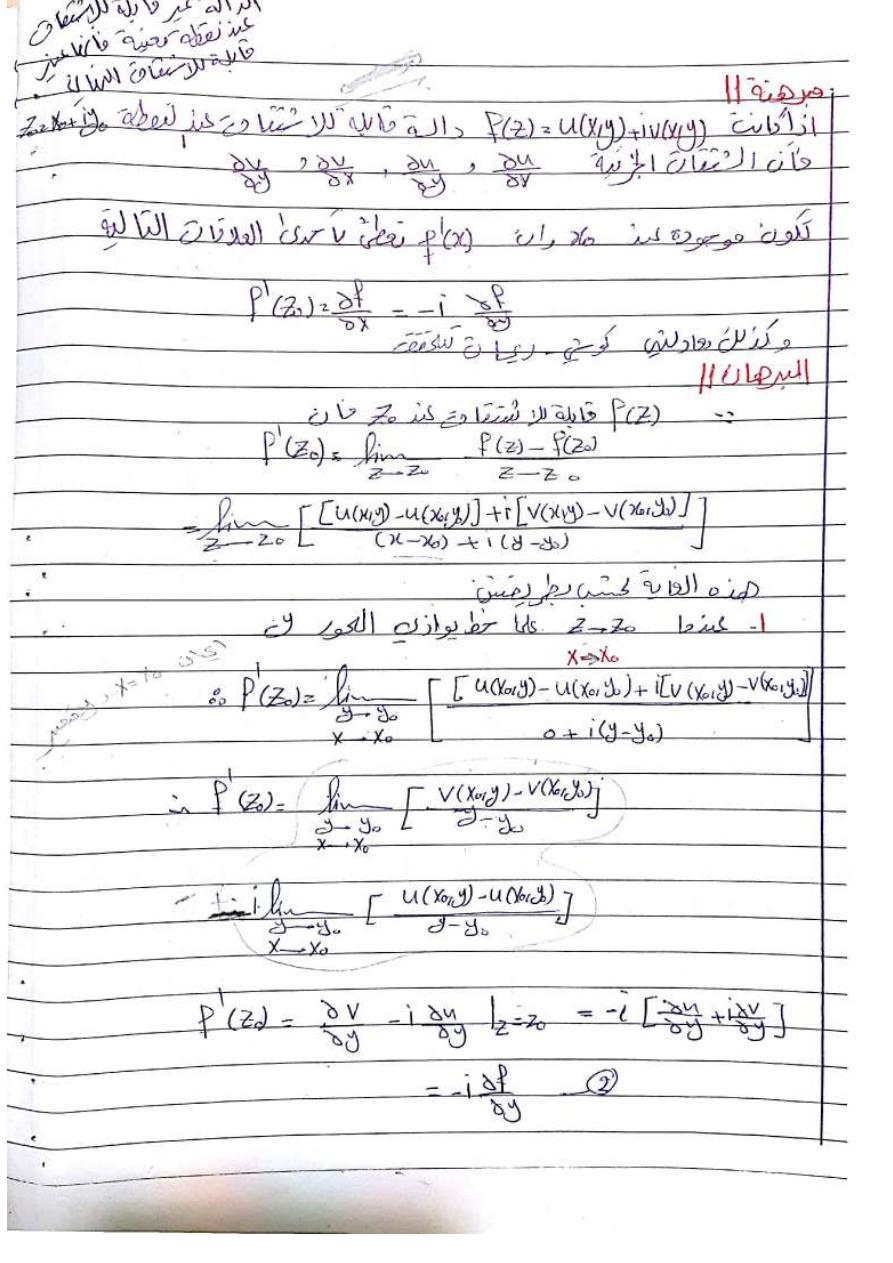 الدالة غير قابلة للاشتقاق
عند نقطة معينة فأنها غير
قابلة للاشتقاق
مبرهنة //
اذا كانت f(z) = u(x,y) + iv(x,y) دالة قابلة للاشتقاق عند نقطة z₀=x₀+iy₀
فأن المشتقات الجزئية ∂u/∂x , ∂u/∂y , ∂v/∂x , ∂v/∂y
تكون موجودة عند x₀ وان f'(x) تعطى بأحدى العلاقات التالية
f'(z₀) = ∂f/∂x = -i ∂f/∂y
وكذلك معادلتي كوشي - ريمان تتحقق
البرهان //
∵ f(z) قابلة للاشتقاق عند z₀ فان
f'(z₀) = lim z→z₀ f(z) - f(z₀) / z - z₀
= lim z→z₀ [ [u(x,y) - u(x₀,y₀)] + i [v(x,y) - v(x₀,y₀)] / (x-x₀) + i(y-y₀) ]
هذه الغاية تحتسب بطريقتين
1- عندما z→z₀ على خط يوازي المحور
x→x₀
∴ f'(z₀) = lim y→y₀ x→x₀ [ [u(x₀,y) - u(x₀,y₀) + i[v(x₀,y) - v(x₀,y₀)] / 0 + i(y-y₀) ]
x=x₀
∴ f'(z₀) = lim y→y₀ x→x₀ [ v(x₀,y) - v(x₀,y₀) / y-y₀ ]
- i lim y→y₀ x→x₀ [ u(x₀,y) - u(x₀,y₀) / y-y₀ ]
f'(z₀) = ∂v/∂y - i ∂u/∂y |z=z₀ = -i [ ∂u/∂y + i∂v/∂y ]
= -i ∂f/∂y ②